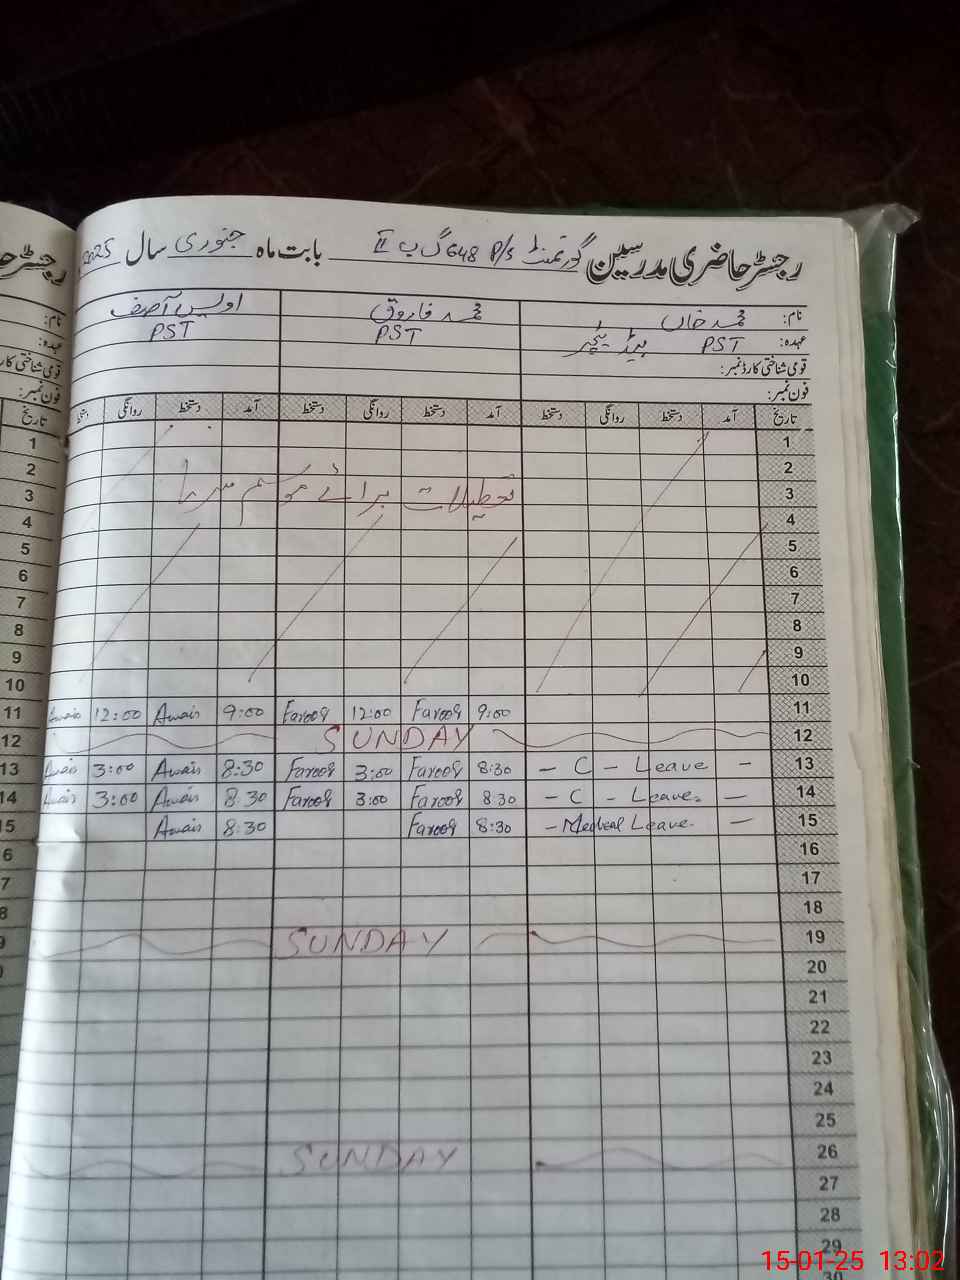 رجسٹر حاضری مدرسین گورنمنٹ P/S 648 گ ب II بابت ماہ جنوری سال 2025
نام: محمد خاں محمد فاروق اویس آصف
عہدہ: PST ہیڈ ٹیچر PST PST
قومی شناختی کارڈ نمبر:
فون نمبر:
تاریخ آمد دستخط روانگی دستخط آمد دستخط روانگی دستخط آمد دستخط روانگی دستخط
1
2
3 تعطیلات برائے موسم سرما
4
5
6
7
8
9
10
11 9:00 Farooq 12:00 Farooq 9:00 Awais 12:00 Awais
12 SUNDAY
13 – C – Leave – 8:30 Farooq 3:00 Farooq 8:30 Awais 3:00 Awais
14 – C – Leave. – 8 30 Farooq 3:00 Farooq 8.30 Awais 3:00 Awais
15 – Medical Leave. – 8:30 Farooq 8:30 Awais
16
17
18
19 SUNDAY
20
21
22
23
24
25
26 SUNDAY
27
28
29
30
رجسٹر
نام:
عہدہ:
قومی شناختی کار
فون نمبر:
تاریخ
1
2
3
4
5
6
7
8
9
10
11
12
13
14
15
6
7
8
9
15-01-25 13:02